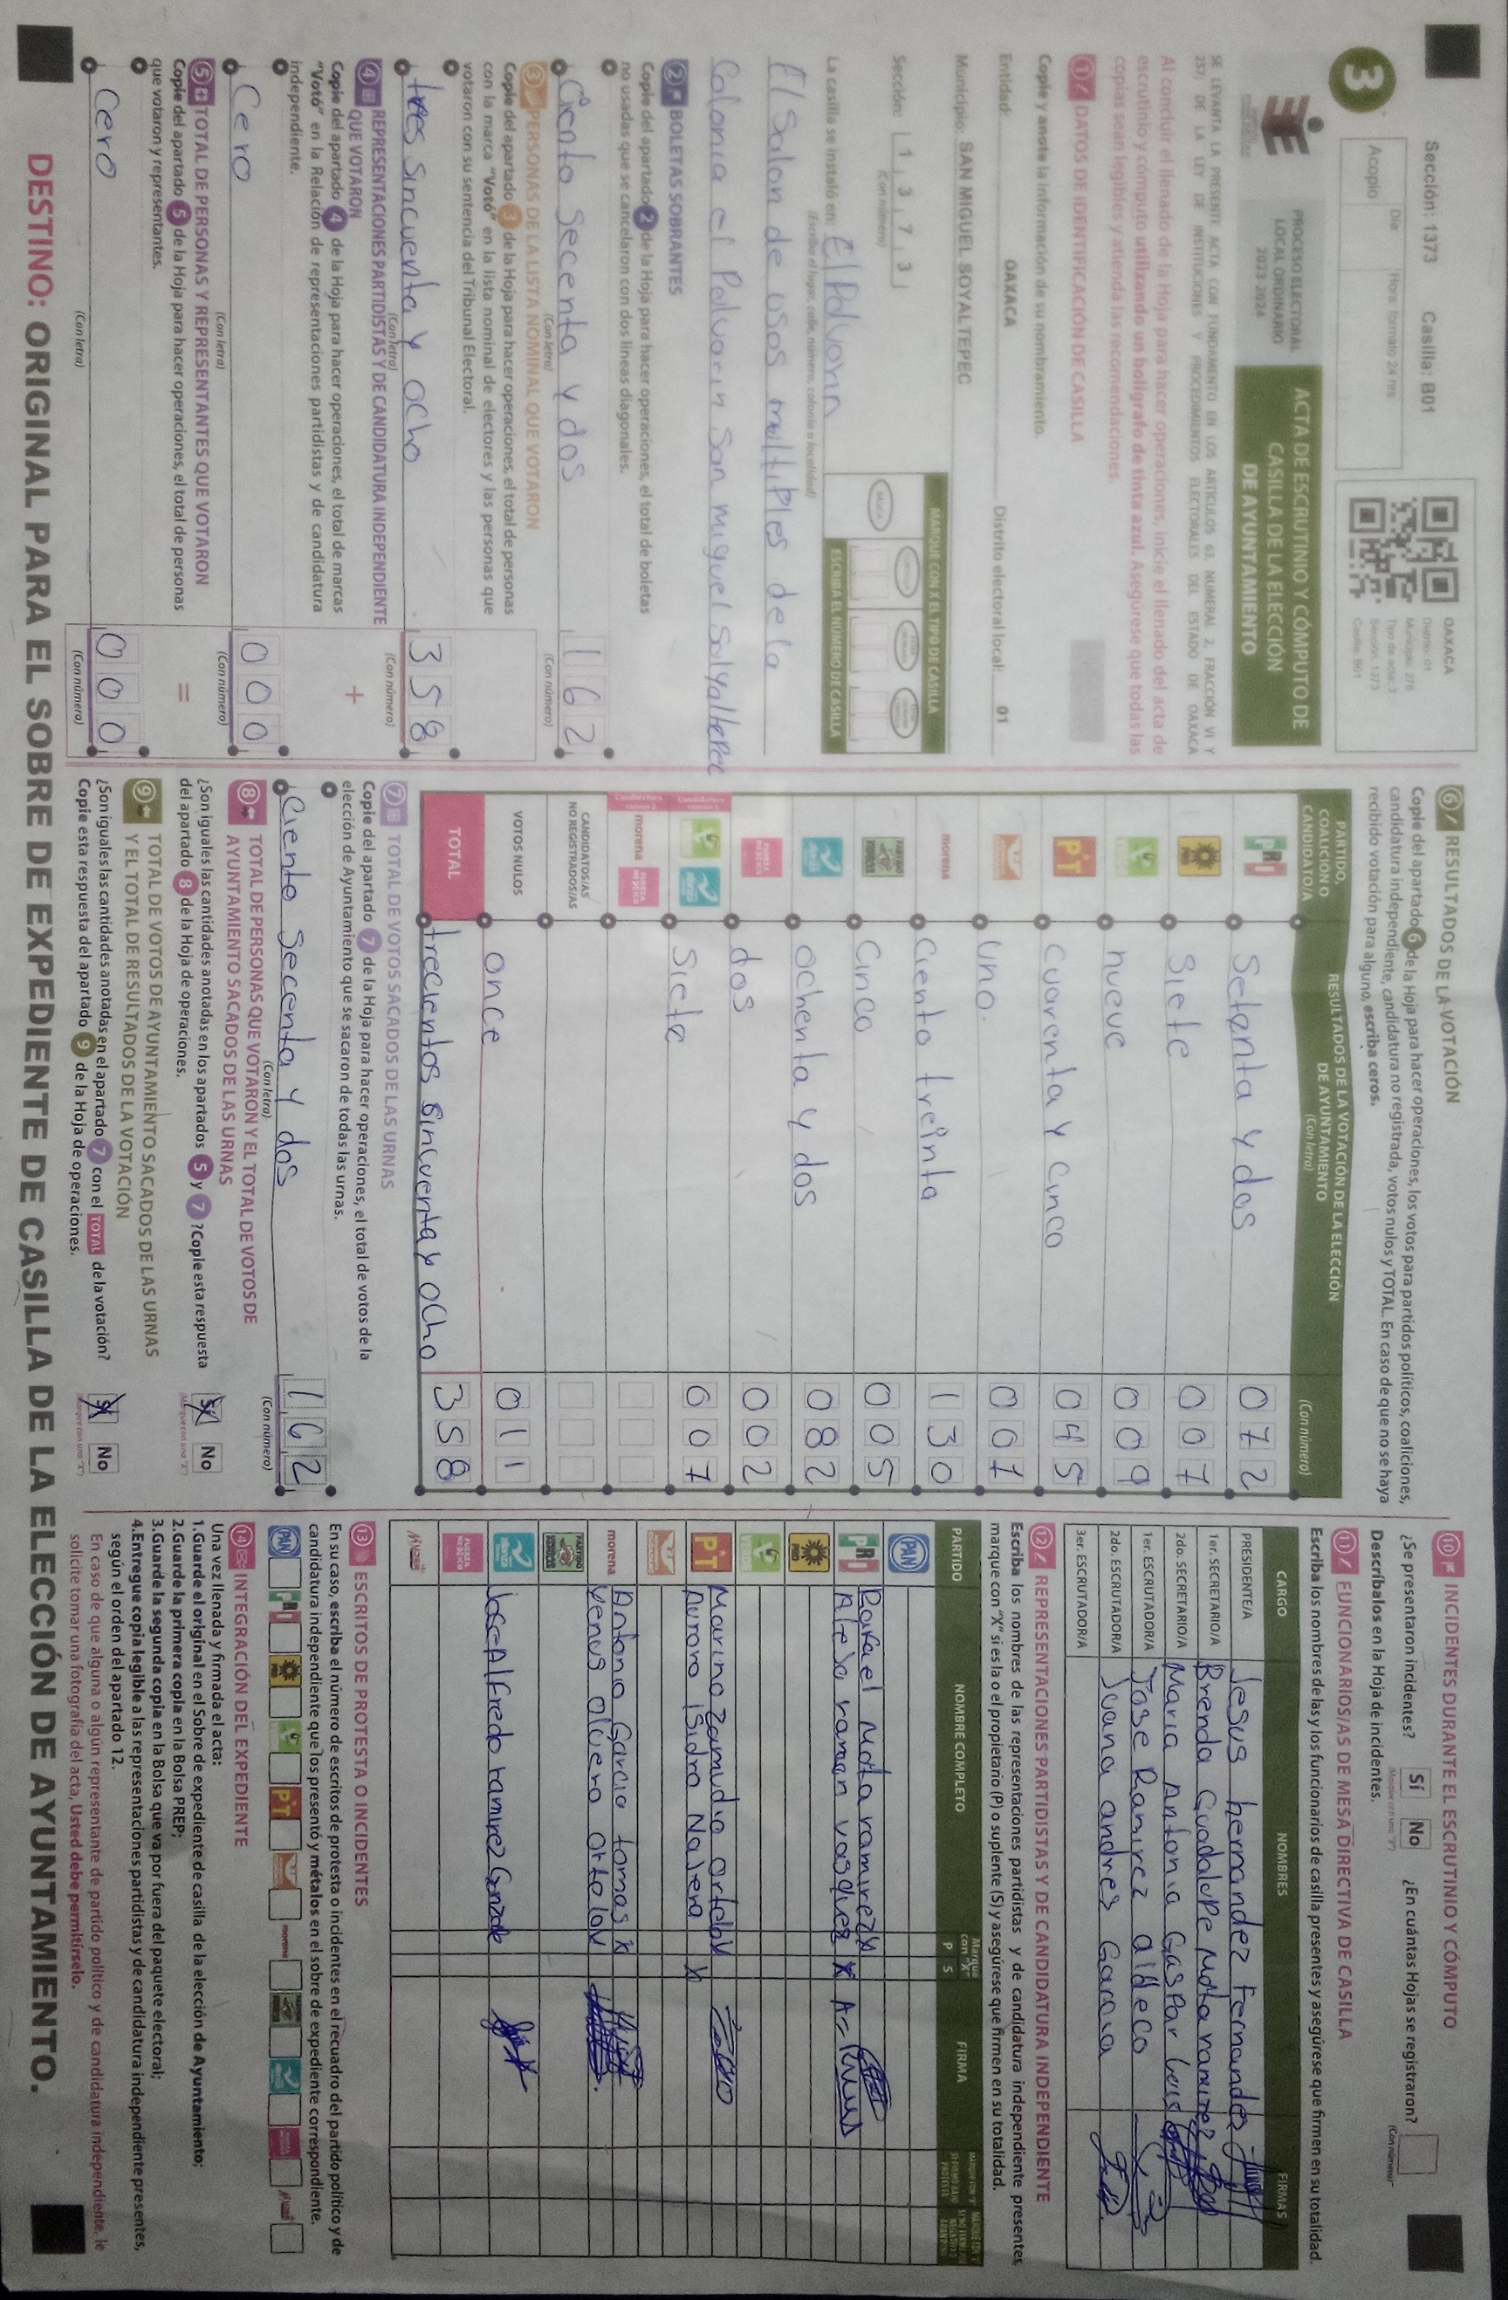 Sección: 1373 Casilla: B01
Día Hora: formato 24 hrs
3
Acopio
OAXACA
Distrito: 01
Sección: 1373
Casilla: B01
PROCESO ELECTORAL
LOCAL ORDINARIO
2023-2024
ACTA DE ESCRUTINIO Y CÓMPUTO DE
CASILLA DE LA ELECCIÓN
DE AYUNTAMIENTO
SE LEVANTA LA PRESENTE ACTA CON FUNDAMENTO EN LOS ARTÍCULOS 63, NUMERAL 2, FRACCIÓN VI Y
237, DE LA LEY DE INSTITUCIONES Y PROCEDIMIENTOS ELECTORALES DEL ESTADO DE OAXACA
Al concluir el llenado de la Hoja para hacer operaciones, inicie el llenado del acta de
escrutinio y cómputo utilizando un bolígrafo de tinta azul. Asegúrese que todas las
copias sean legibles y atienda las recomendaciones.
1 DATOS DE IDENTIFICACIÓN DE CASILLA
Copie y anote la información de su nombramiento.
Entidad: OAXACA Distrito electoral local: 01
Municipio: SAN MIGUEL SOYALTEPEC
Sección: 1 3 7 3
(Con número)
MARQUE CON X EL TIPO DE CASILLA
ESCRIBA EL NÚMERO DE CASILLA
La casilla se instaló en: El Polvorin
(Escribe el lugar, calle, número, colonia o localidad)
El Salon de usos multiples de la
Colonia el Polvorin San miguel Soyaltepec
2 BOLETAS SOBRANTES
Copie del apartado 2 de la Hoja para hacer operaciones, el total de boletas
no usadas que se cancelaron con dos líneas diagonales.
Ciento Secenta y dos 1 6 2
(Con letra) (Con número)
3 PERSONAS DE LA LISTA NOMINAL QUE VOTARON
Copie del apartado 3 de la Hoja para hacer operaciones, el total de personas
con la marca "Votó" en la lista nominal de electores y las personas que
votaron con su sentencia del Tribunal Electoral.
tres Sincuenta y ocho 3 5 8
(Con letra) (Con número)
4 REPRESENTACIONES PARTIDISTAS Y DE CANDIDATURA INDEPENDIENTE
QUE VOTARON
Copie del apartado 4 de la Hoja para hacer operaciones, el total de marcas
"Votó" en la Relación de representaciones partidistas y de candidatura
independiente.
+
Cero 0 0 0
(Con letra) (Con número)
5 TOTAL DE PERSONAS Y REPRESENTANTES QUE VOTARON
Copie del apartado 5 de la Hoja para hacer operaciones, el total de personas
que votaron y representantes.
=
Cero 0 0 0
(Con letra) (Con número)
6 RESULTADOS DE LA VOTACIÓN
Copie del apartado 6 de la Hoja para hacer operaciones, los votos para partidos políticos, coaliciones,
candidatura independiente, candidatura no registrada, votos nulos y TOTAL. En caso de que no se haya
recibido votación para alguno, escriba ceros.
PARTIDO, COALICIÓN O CANDIDATO/A
RESULTADOS DE LA VOTACIÓN DE LA ELECCIÓN
DE AYUNTAMIENTO
(Con letra) (Con número)
PRI Setenta y dos 0 7 2
PRD Siete 0 0 7
VERDE nueve 0 0 9
PT Cuarenta y cinco 0 4 5
uno. 0 0 1
morena Ciento treinta 1 3 0
Cinco 0 0 5
ochenta y dos 0 8 2
FUERZA MÉXICO dos 0 0 2
Siete 0 0 7
morena FUERZA MÉXICO
CANDIDATOS/AS
NO REGISTRADOS/AS
VOTOS NULOS once 0 1 1
TOTAL trecientos Sincuenta y ocho 3 5 8
7 TOTAL DE VOTOS SACADOS DE LAS URNAS
Copie del apartado 7 de la Hoja para hacer operaciones, el total de votos de la
elección de Ayuntamiento que se sacaron de todas las urnas.
Ciento Secenta y dos 1 6 2
(Con letra) (Con número)
8 TOTAL DE PERSONAS QUE VOTARON Y EL TOTAL DE VOTOS DE
AYUNTAMIENTO SACADOS DE LAS URNAS
¿Son iguales las cantidades anotadas en los apartados 5 y 7 ? Copie esta respuesta
del apartado 8 de la Hoja de operaciones.
Sí No
9 TOTAL DE VOTOS DE AYUNTAMIENTO SACADOS DE LAS URNAS
Y EL TOTAL DE RESULTADOS DE LA VOTACIÓN
¿Son iguales las cantidades anotadas en el apartado 7 con el TOTAL de la votación?
Copie esta respuesta del apartado 9 de la Hoja de operaciones.
Sí No
10 INCIDENTES DURANTE EL ESCRUTINIO Y CÓMPUTO
¿Se presentaron incidentes? Sí No ¿En cuántas Hojas se registraron?
(Con número)
Descríbalos en la Hoja de incidentes.
11 FUNCIONARIOS/AS DE MESA DIRECTIVA DE CASILLA
Escriba los nombres de las y los funcionarios de casilla presentes y asegúrese que firmen en su totalidad.
CARGO NOMBRES FIRMAS
PRESIDENTE/A Jesus hernandez Fernandez
1er. SECRETARIO/A Brenda Guadalupe Mota ramirez
2do. SECRETARIO/A Maria Antonia Gaspar Luis
1er. ESCRUTADOR/A Jose Ramirez aldeco
2do. ESCRUTADOR/A Juana andres Garcia
3er. ESCRUTADOR/A
12 REPRESENTACIONES PARTIDISTAS Y DE CANDIDATURA INDEPENDIENTE
Escriba los nombres de las representaciones partidistas y de candidatura independiente presentes,
marque con "X" si es la o el propietario (P) o suplente (S) y asegúrese que firmen en su totalidad.
PARTIDO NOMBRE COMPLETO Marque con "X" P S FIRMA
PAN
PRI Rafael Mota ramirez x
roman vasquez x
PRD
VERDE
PT Marino Zamudio
Aurora Isidro x
morena Antonio Garcia tomas x
Venus
Jose Alfredo ramirez
FUERZA MÉXICO
13 ESCRITOS DE PROTESTA O INCIDENTES
En su caso, escriba el número de escritos de protesta o incidentes en el recuadro del partido político y de
candidatura independiente que los presentó y métalos en el sobre de expediente correspondiente.
PAN PRI PRD VERDE PT morena
14 INTEGRACIÓN DEL EXPEDIENTE
Una vez llenada y firmada el acta:
1.Guarde el original en el Sobre de expediente de casilla de la elección de Ayuntamiento;
2.Guarde la primera copia en la Bolsa PREP;
3.Guarde la segunda copia en la Bolsa que va por fuera del paquete electoral;
4.Entregue copia legible a las representaciones partidistas y de candidatura independiente presentes,
según el orden del apartado 12.
En caso de que alguna o algún representante de partido político y de candidatura independiente, le
solicite tomar una fotografía del acta, Usted debe permitírselo.
DESTINO: ORIGINAL PARA EL SOBRE DE EXPEDIENTE DE CASILLA DE LA ELECCIÓN DE AYUNTAMIENTO.